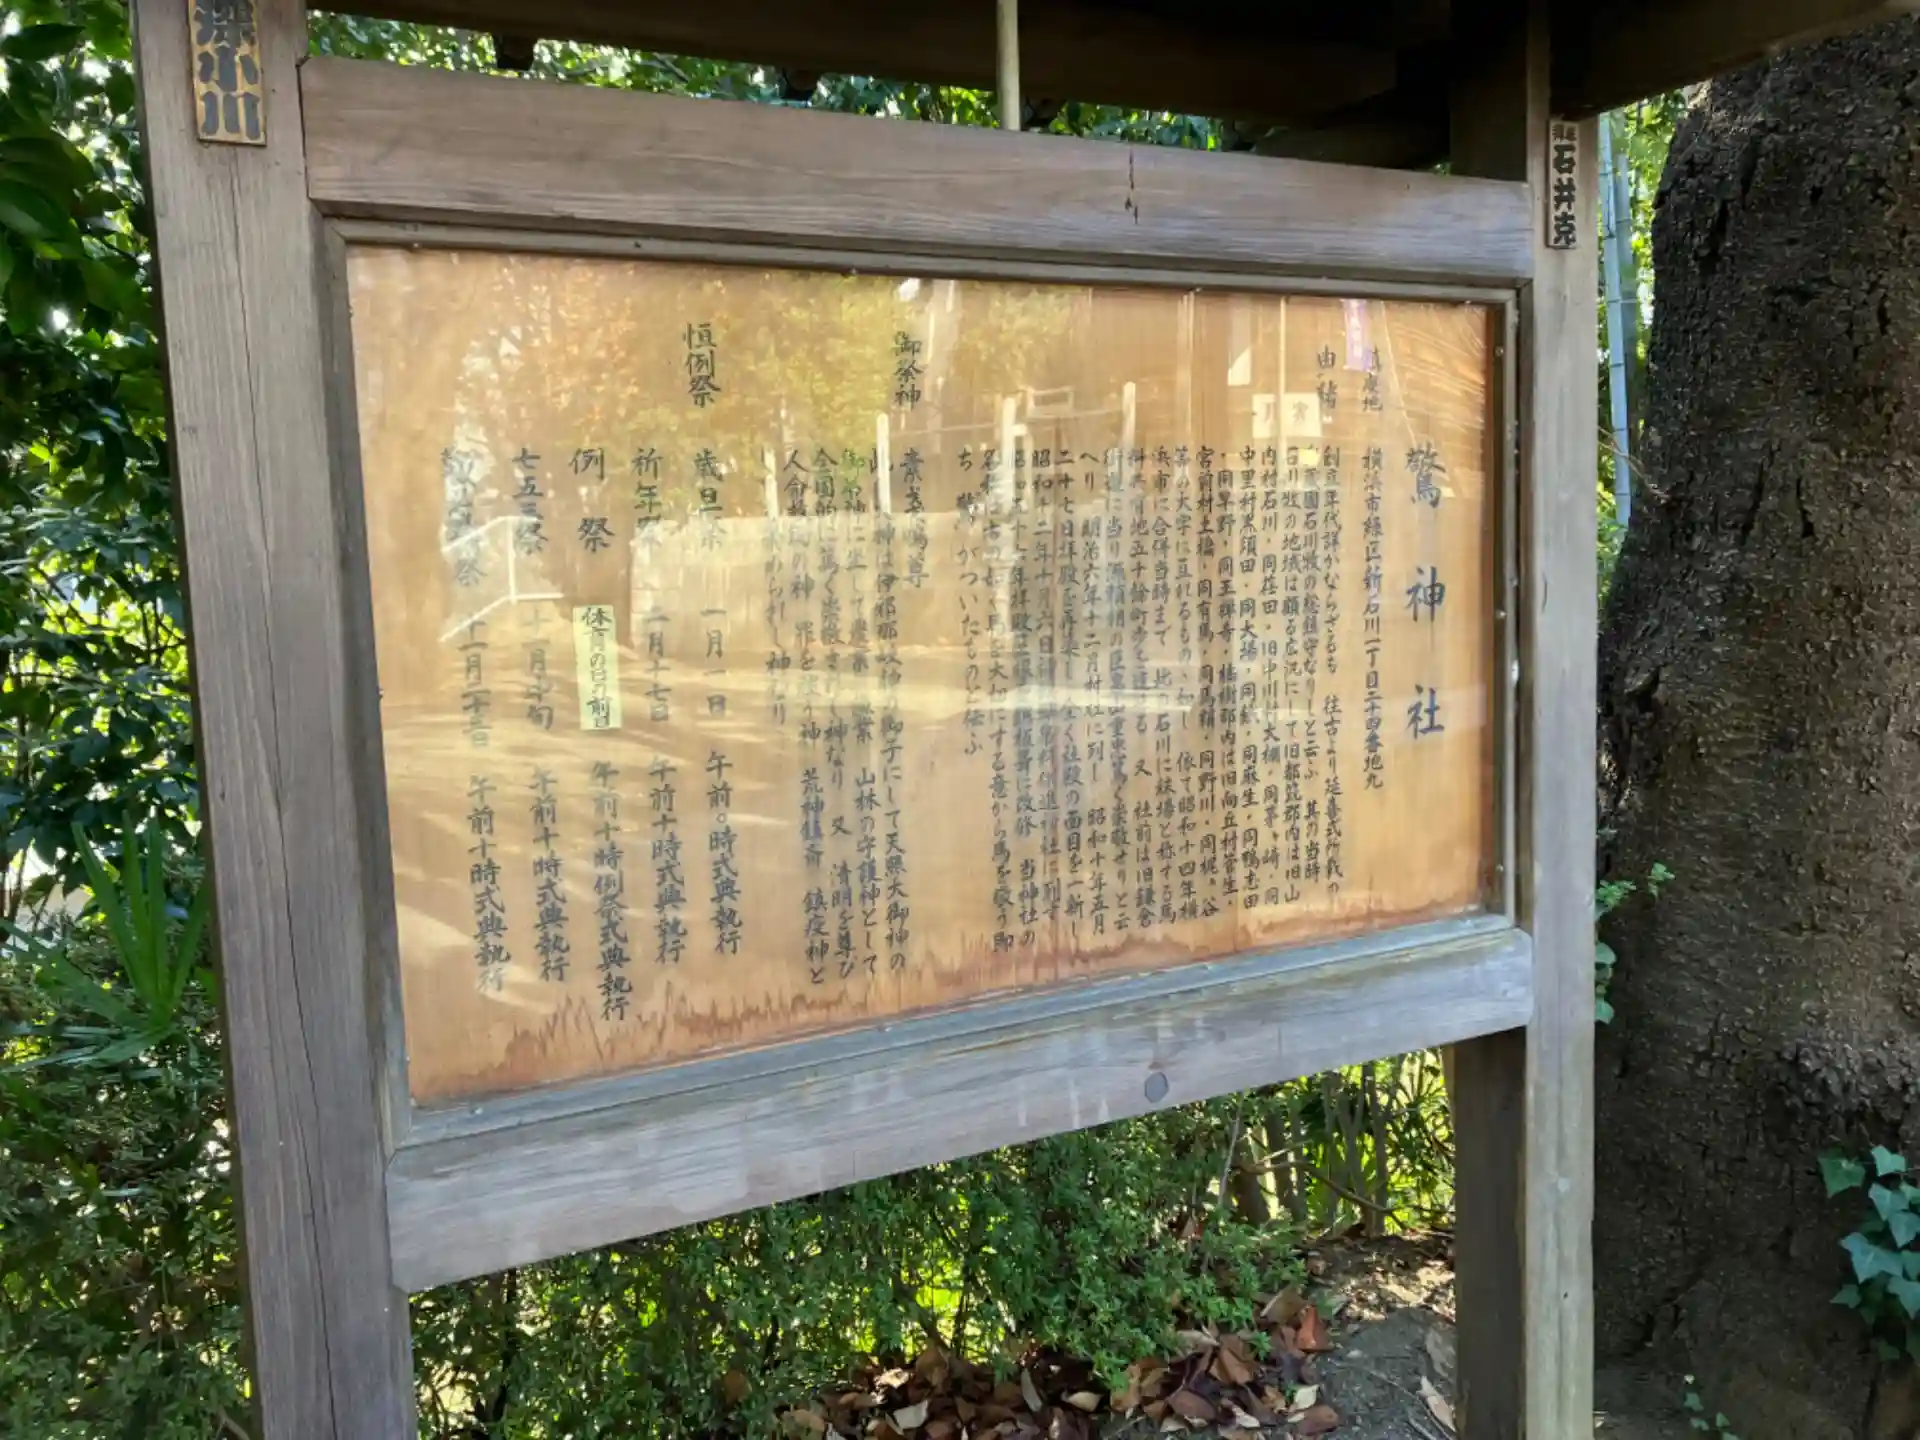 驚神社
鎮座地 横浜市緑区新石川一丁目二十四番地九
由緒 創立年代詳かならざるも 往古より延喜式所載の
國石川牧の総鎮守なりしと云ふ 其の当時
石川牧の地域は頗る広汎にして旧都筑郡内は旧山
内村石川・同荏田・旧中川村大棚・同茅ヶ崎・同
中里村黒須田・同大場・同鉄・同麻生・同鴨志田
・同早野・同王禅寺・橘樹郡内は旧向丘村菅生・
宮前村土橋・同有馬・同馬絹・同野川・同梶ヶ谷
等の大字に亘れるものゝ如し 依て昭和十四年横
浜市に合併当時まで 此の石川に鉄場と称する馬
料共有地五十餘町歩を 又 社前は旧鎌倉
街道に当り源頼朝の臣畠山重忠篤く崇敬せりと云
へり 明治六年十二月村社に列し 昭和十年五月
二十七日拝殿を再築し 全く社殿の面目を一新し
昭和十二年十月六日神饌幣帛料供進神社に列す
昭和五十 年拝殿屋根 銅板葺に改修 当神社の
名称は古の 馬を大切にする意から馬を敬う即
ち 驚 がついたものと伝ふ
御祭神 素盞嗚尊
神は伊邪那岐神の御子にして天照大御神の
御弟神に坐して農業 山林の守護神として
全国的に篤く崇敬されし神なり 又 清明を尊び
人命救助の神 罪を 神 荒神鎮斎 鎮疫神と
崇められし神なり
恒例祭 歳旦祭 一月一日 午前〇時式典執行
祈年祭 二月十七日 午前十時式典執行
例祭 体育の日の前日 午前十時例祭式典執行
七五三祭 十一月中旬 午前十時式典執行
祭 十一月二十三日 午前十時式典執行
小川
石井克